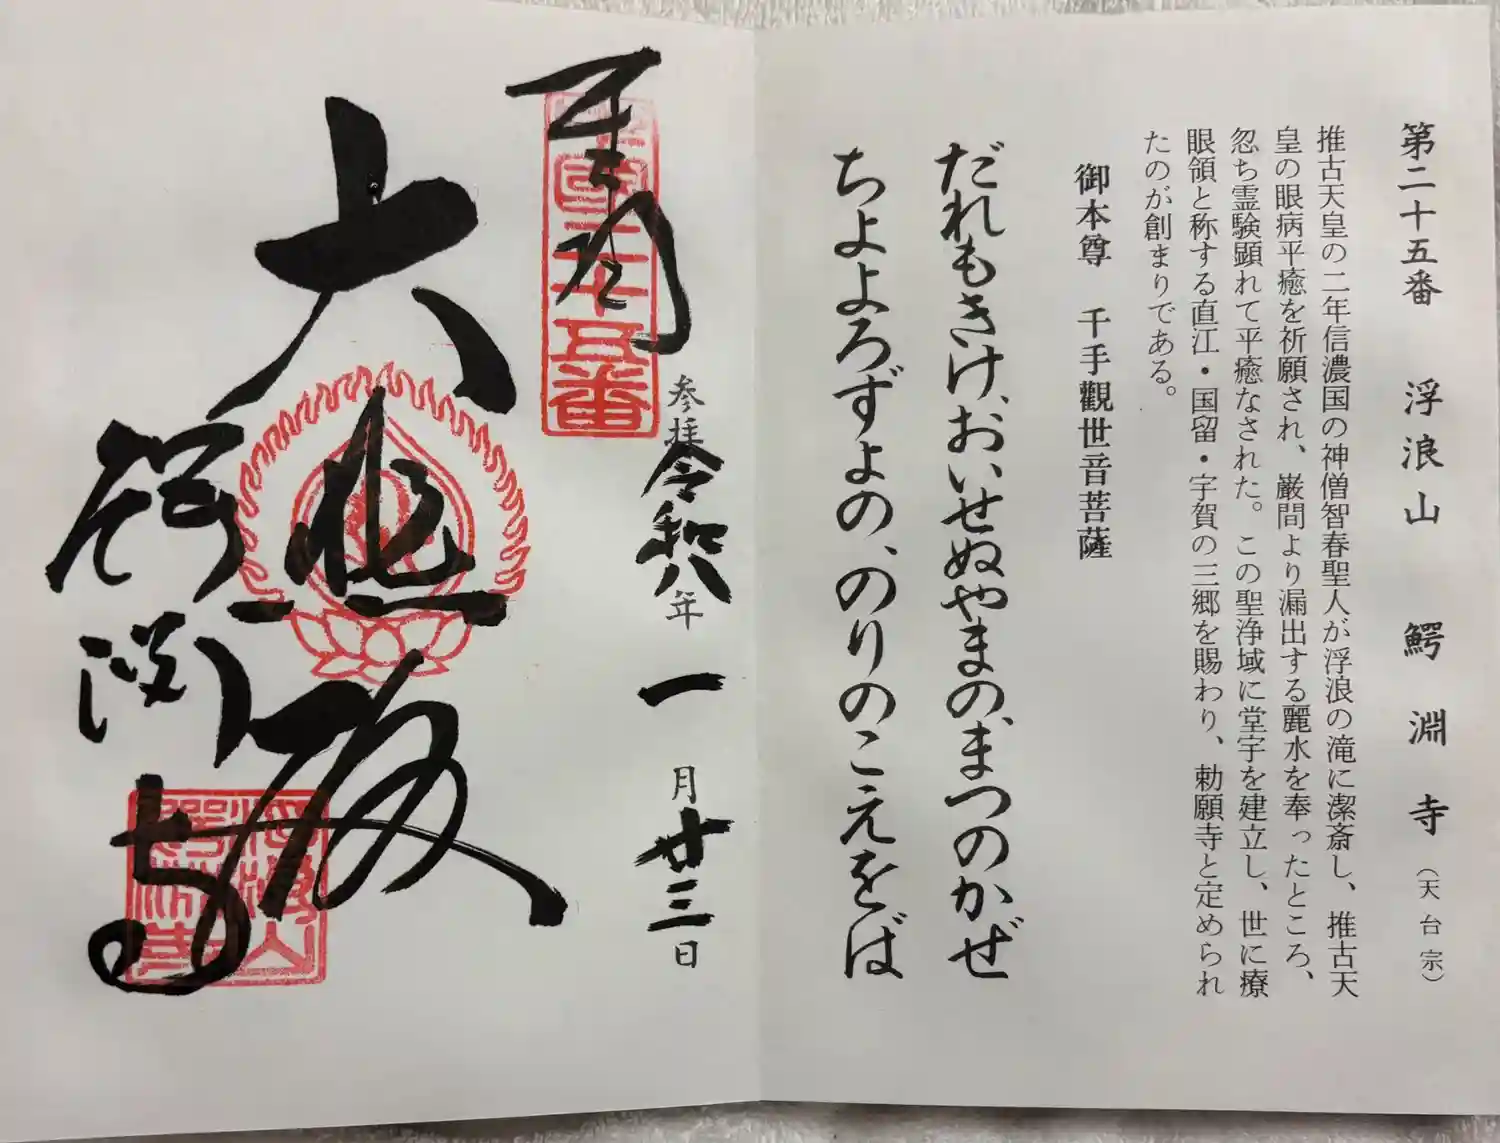 第二十五番　浮浪山　鰐淵寺（天台宗）
推古天皇の二年信濃国の神僧智春聖人が浮浪の滝に潔斎し、推古天
皇の眼病平癒を祈願され、巌間より漏出する麗水を奉ったところ、
忽ち霊験顕れて平癒なされた。この聖浄域に堂宇を建立し、世に療
眼領と称する直江・国留・宇賀の三郷を賜わり、勅願寺と定められ
たのが創まりである。
御本尊　千手觀世音菩薩
だれもきけ、おいせぬやまの、まつのかぜ
ちよよろずよの、のりのこえをば
奉拝
参拝令和八年一月廿三日
中国二十五番
大悲殿
鰐淵寺
浮浪山鰐淵寺